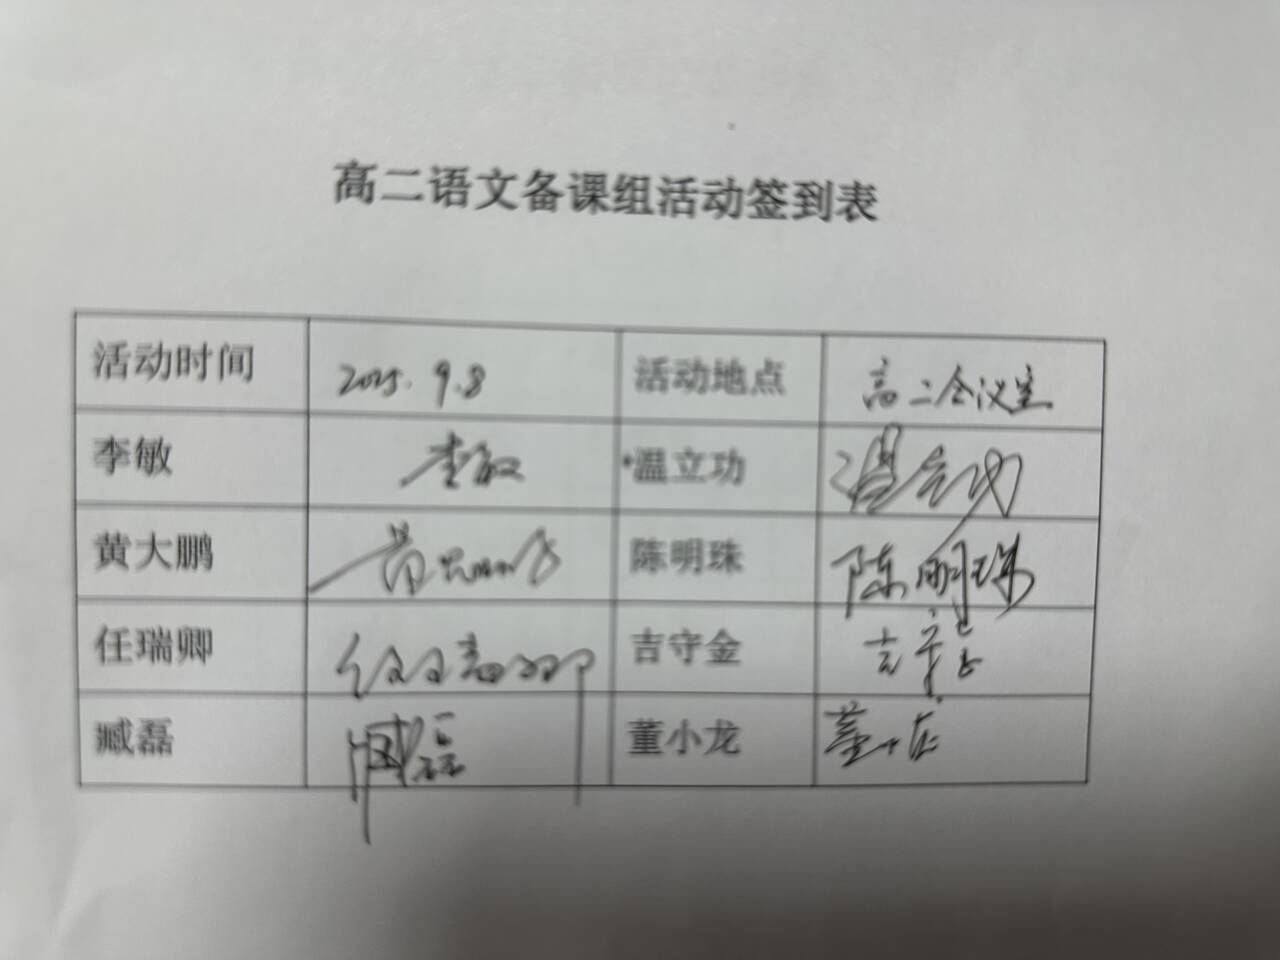 高二语文备课组活动签到表
活动时间 2025.9.8 活动地点 高二会议室
李敏 李敏 温立功 温立功
黄大鹏 黄大鹏 陈明珠 陈明珠
任瑞卿 任瑞卿 吉守金 吉守金
臧磊 臧磊 董小龙 董小龙